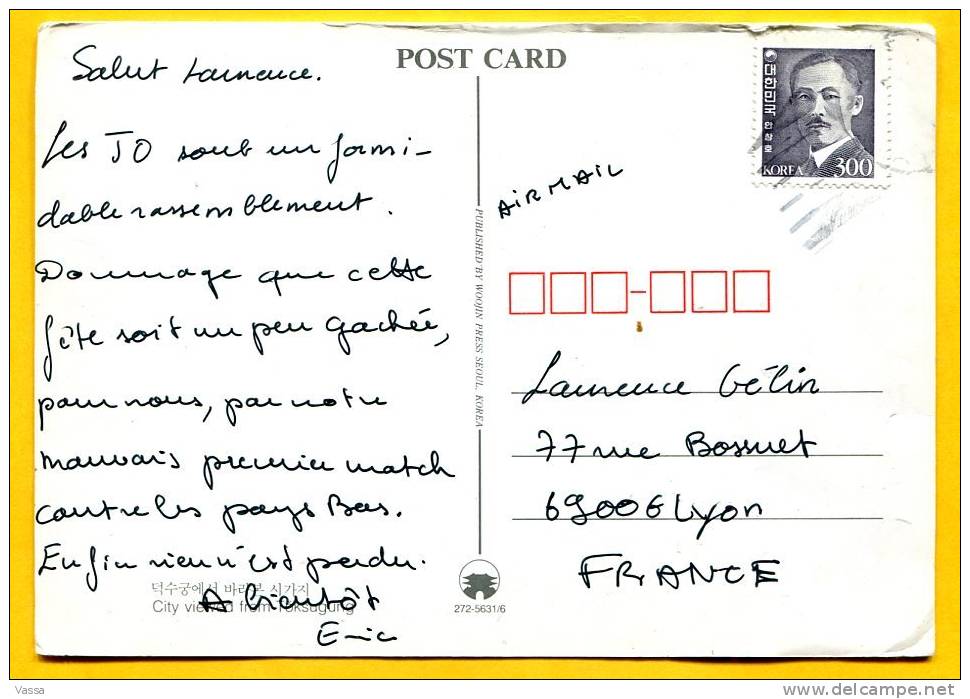 POST CARD
Salut Laurence.
Les JO sont un formi-
dable rassemblement.
Dommage que cette
fête soit un peu gachée,
pour nous, par notre
mauvais premier match
contre les pays Bas.
Enfin rien n'est perdu.
A bientôt
Eric
덕수궁에서 바라본 시가지
City viewed from Toksugung
PUBLISHED BY WOOJIN PRESS SEOUL, KOREA
272-5631/6
대한민국
안창호
KOREA 300
AIR MAIL
Laurence Gélin
77 rue Bossuet
69006 Lyon
FRANCE
Vassa
http://www.delcampe.net